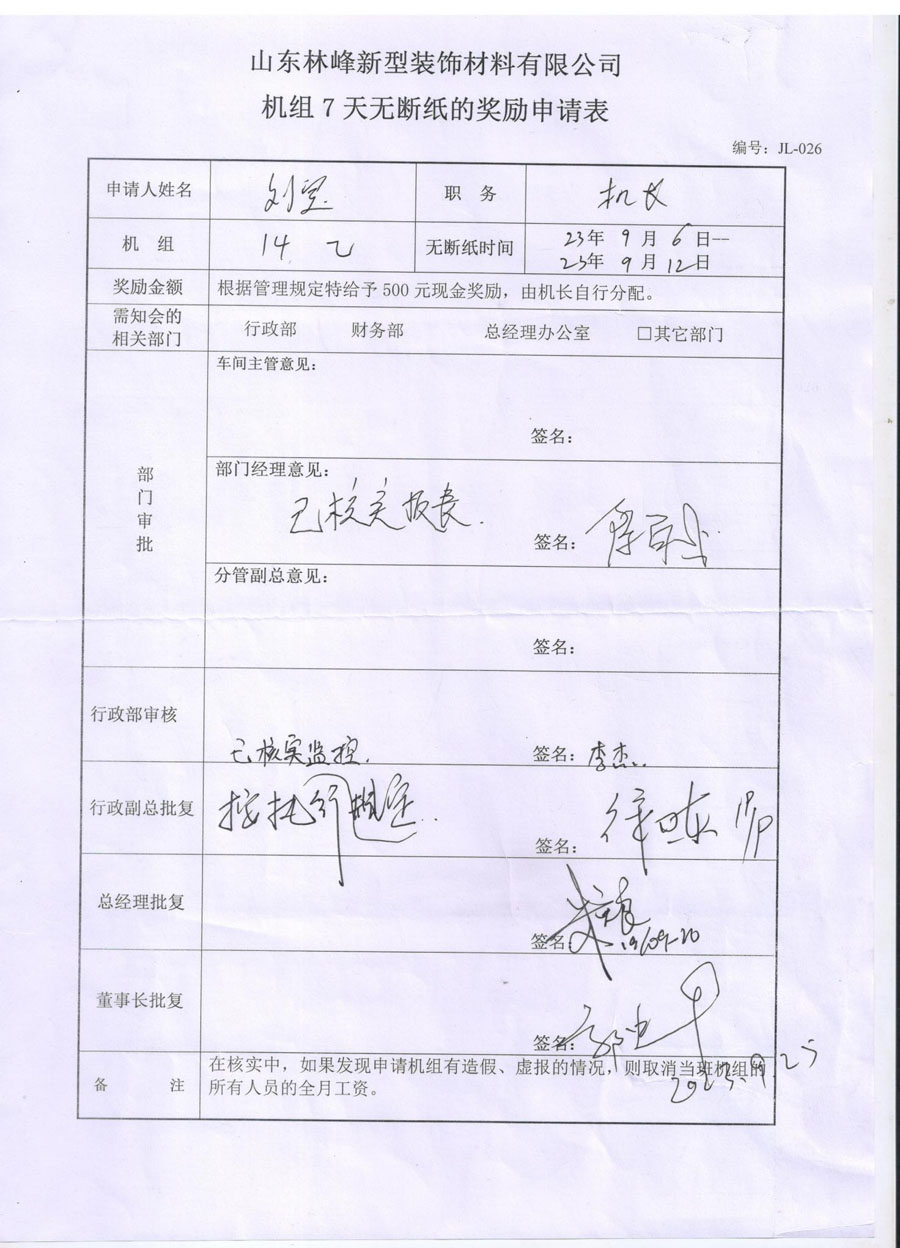 山东林峰新型装饰材料有限公司
机组 7 天无断纸的奖励申请表
编号：JL-026
申请人姓名 职 务 机长
机 组 14 乙 无断纸时间 23年 9 月 6 日--
23年 9 月 12日
奖励金额 根据管理规定特给予 500 元现金奖励，由机长自行分配。
需知会的
相关部门 行政部 财务部 总经理办公室 □其它部门
车间主管意见：
签名：
部门审批
部门经理意见：
已核实
签名：
分管副总意见：
签名：
行政部审核
已核实监控.
签名：李杰
行政副总批复 按执行规定
签名：
总经理批复
签名
董事长批复
签名：
2023.9.25
备 注 在核实中，如果发现申请机组有造假、虚报的情况，则取消当班机组的
所有人员的全月工资。